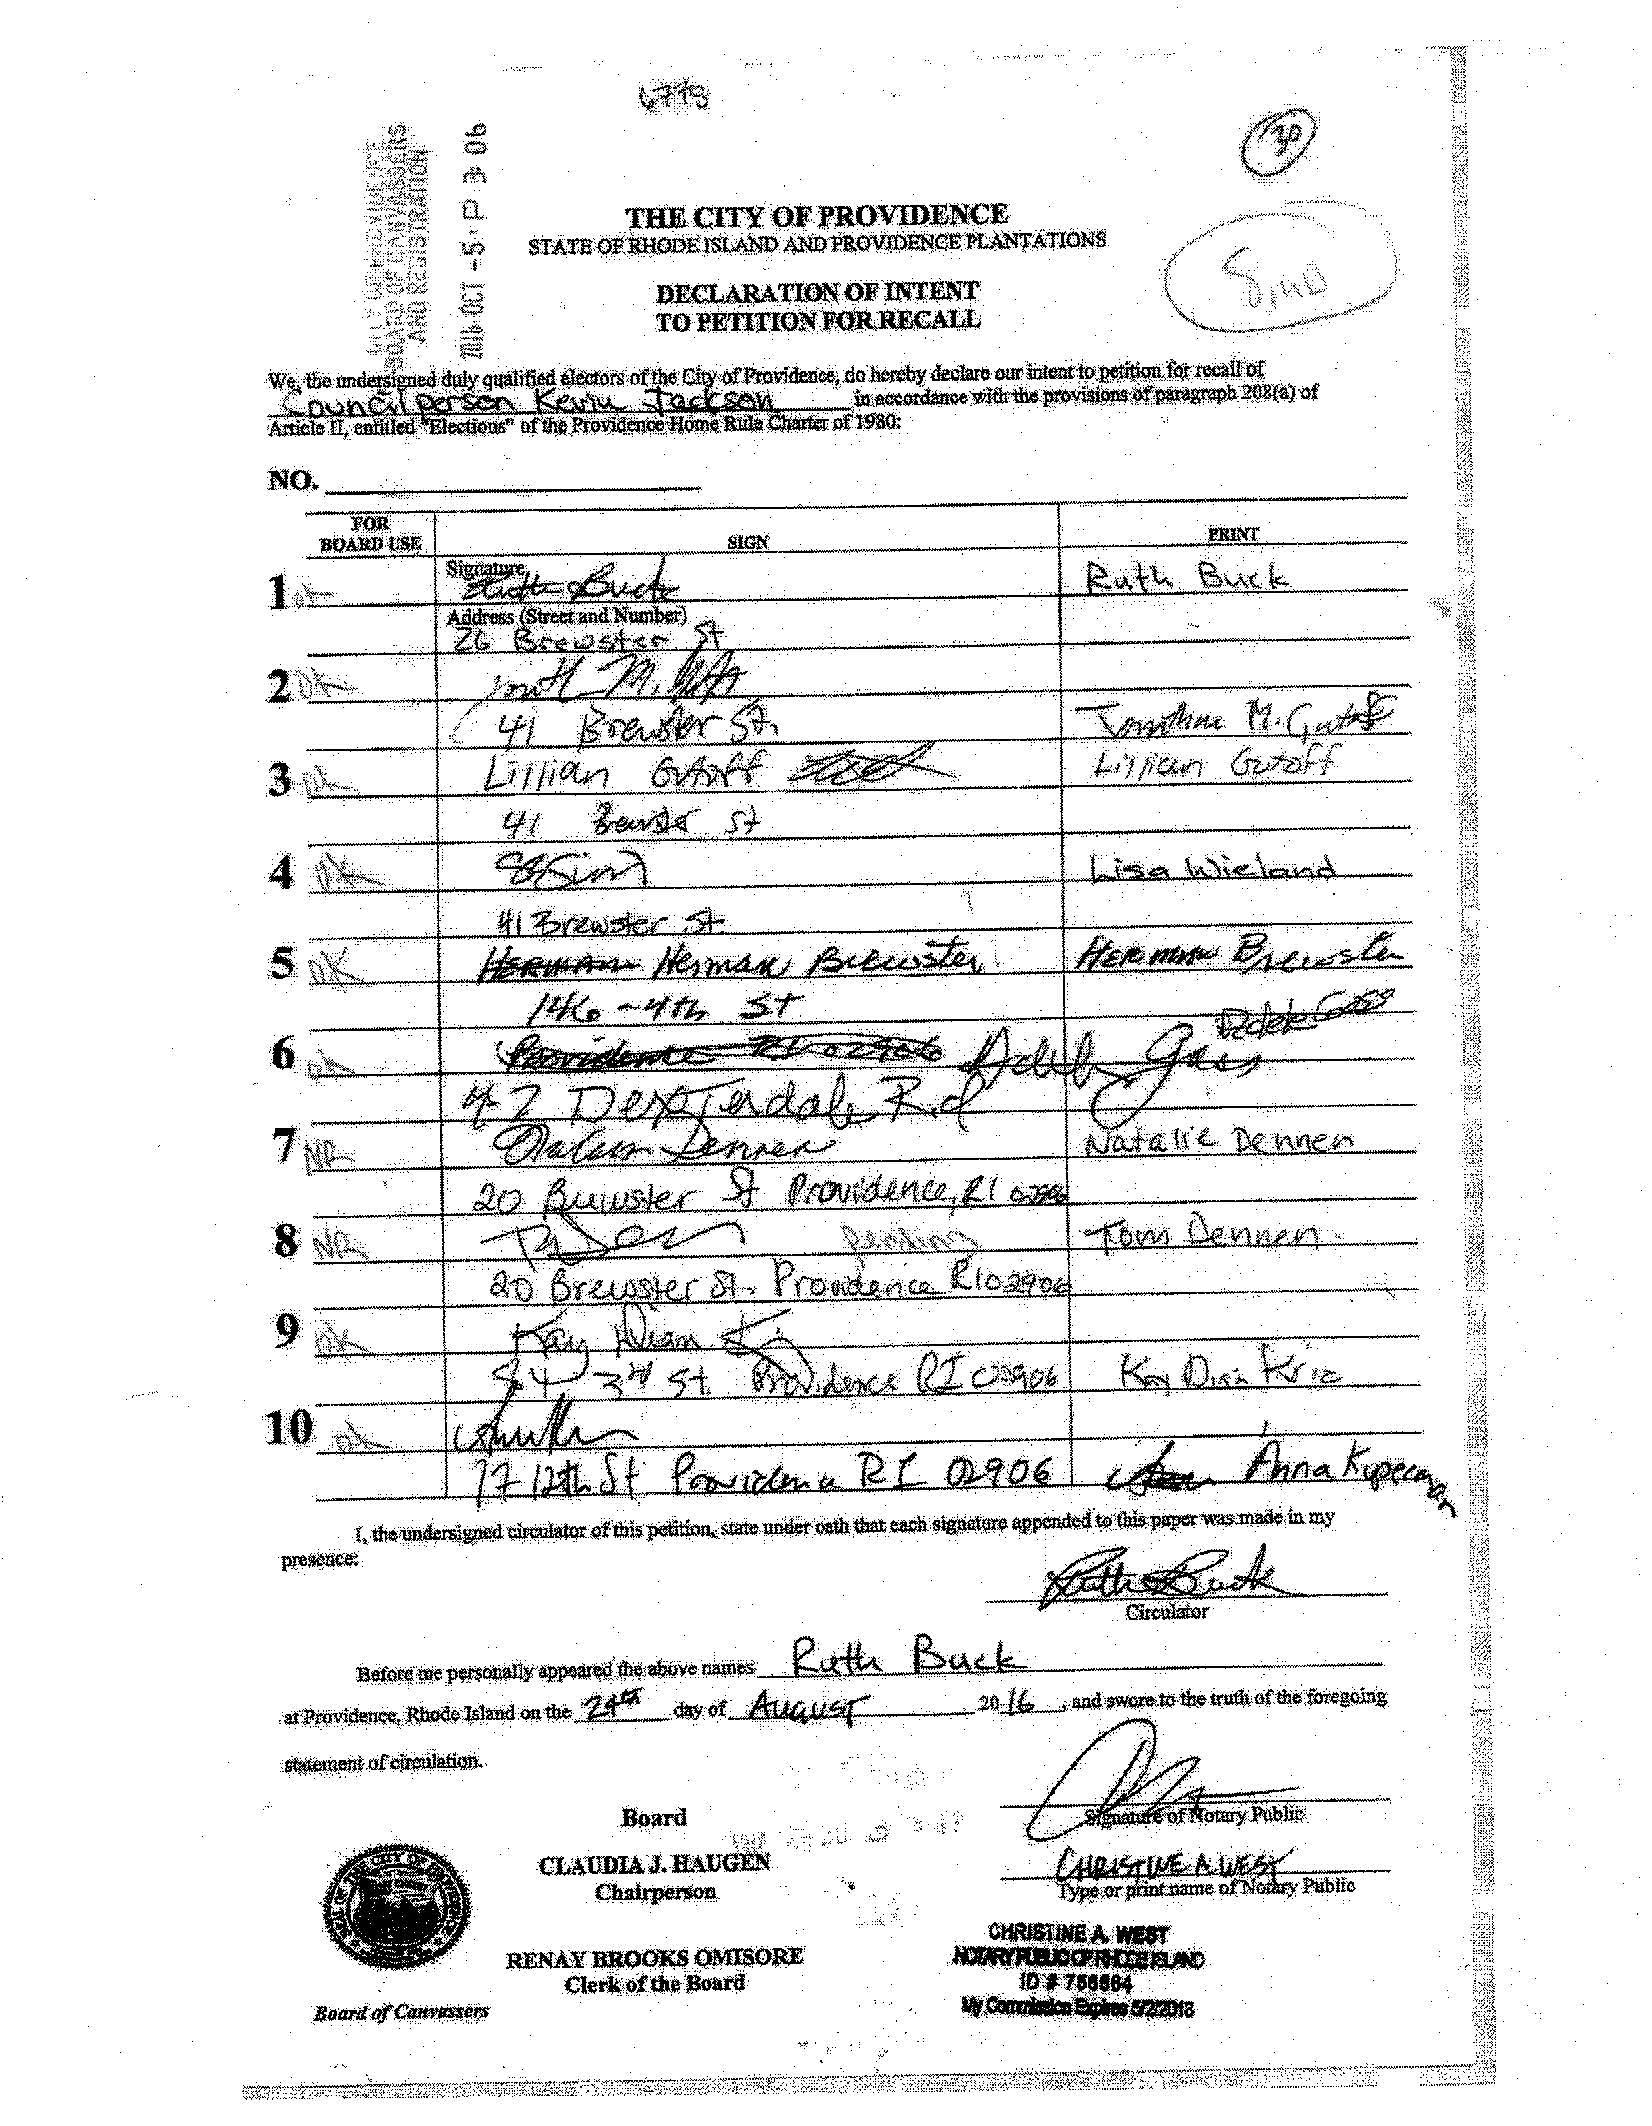 30
THE CITY OF PROVIDENCE
STATE OF RHODE ISLAND AND PROVIDENCE PLANTATIONS
DECLARATION OF INTENT
TO PETITION FOR RECALL
BOARD OF CANVASSERS
AND REGISTRATION
OCT -5 P 3 06
We, the undersigned duly qualified electors of the City of Providence, do hereby declare our intent to petition for recall of
Councilperson Kevin Jackson in accordance with the provisions of paragraph 208(a) of
Article II, entitled "Elections" of the Providence Home Rule Charter of 1980:
NO.
FOR BOARD USE SIGN PRINT
Signature
1 OK Ruth Buck Ruth Buck
Address (Street and Number)
26 Brewster St
2 OK
41 Brewster St. M. Gutoff
3 OK Lillian Gutoff Lillian Gutoff
41 Brewster St
4 OK Lisa Wieland
41 Brewster St
5 OK Herman Herman Brewster Herman Brewster
146 - 4th St
6 OK Providence RI 02906 Adele Gass
42 Dexterdale Rd
7 NR Natalie Dennen Natalie Dennen
20 Brewster St Providence, RI 02906
8 NR pending Tom Dennen
20 Brewster St. Providence RI 02906
9 OK Kay Dian
84 3rd St Providence RI 02906 Kay Dian Kriz
10 OK
77 12th St Providence RI 02906 Anna
I, the undersigned circulator of this petition, state under oath that each signature appended to this paper was made in my
presence:
Ruth Buck
Circulator
Before me personally appeared the above names Ruth Buck
at Providence, Rhode Island on the 29th day of August 2016, and swore to the truth of the foregoing
statement of circulation.
Signature of Notary Public
CHRISTINE A. WEST
Type or print name of Notary Public
Board
CLAUDIA J. HAUGEN
Chairperson
RENAY BROOKS OMISORE
Clerk of the Board
Board of Canvassers
CHRISTINE A. WEST
NOTARY PUBLIC OF RHODE ISLAND
ID # 756864
My Commission Expires 5/2/2018